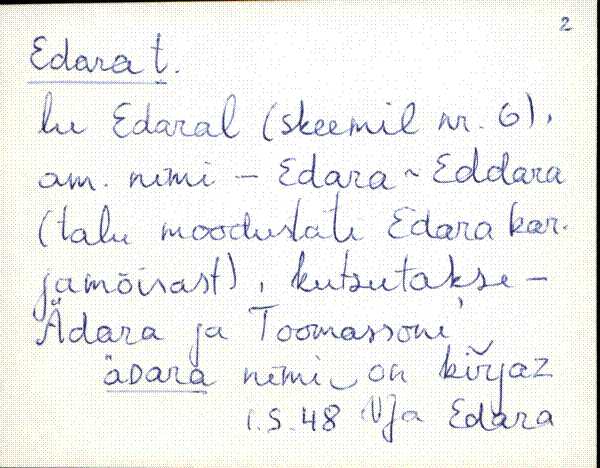 2
Edara t.
lu Edaral (skeemil nr. 6),
am. nimi - Edara ~ Eddara
(talu moodustati Edara kar-
jamõisast), kutsutakse -
Ädara ja Toomassoni,
äDara nimi on kiŕjaz
1.S.48 Vja Edara